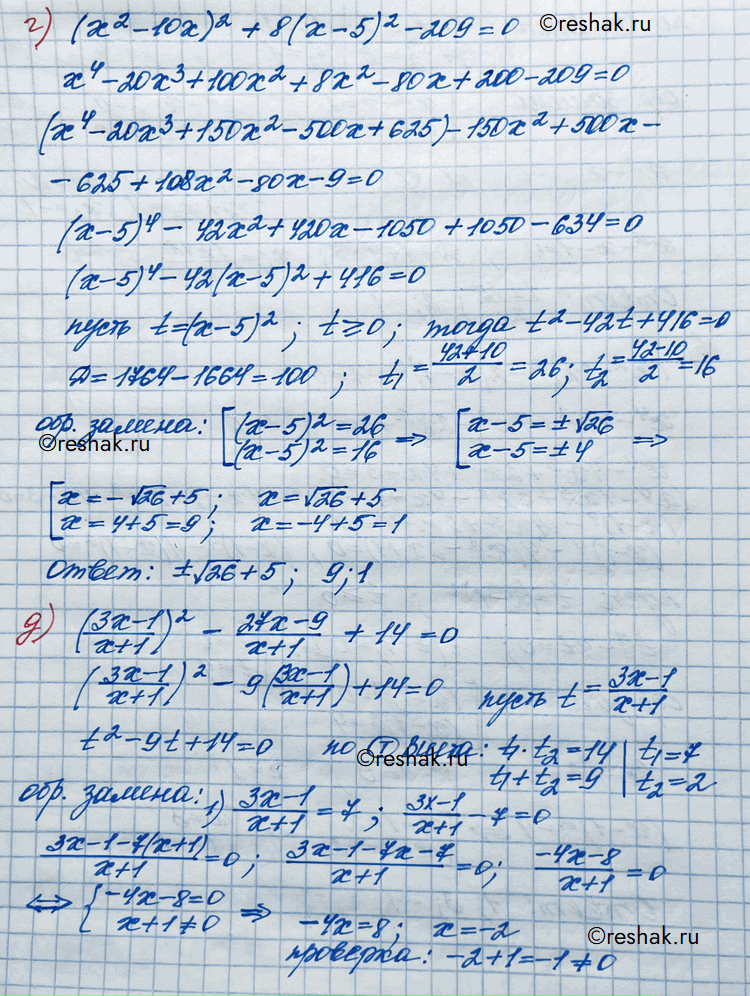 ©reshak.ru
г) (x² - 10x)² + 8(x - 5)² - 209 = 0
x⁴ - 20x³ + 100x² + 8x² - 80x + 200 - 209 = 0
(x⁴ - 20x³ + 150x² - 500x + 625) - 150x² + 500x -
- 625 + 108x² - 80x - 9 = 0
(x - 5)⁴ - 42x² + 420x - 1050 + 1050 - 634 = 0
(x - 5)⁴ - 42(x - 5)² + 416 = 0
пусть t = (x - 5)²; t ≥ 0; тогда t² - 42t + 416 = 0
D = 1764 - 1664 = 100; t₁ = (42+10)/2 = 26; t₂ = (42-10)/2 = 16
обр. замена: [ (x - 5)² = 26 ⇒ [ x - 5 = ±√26 ⇒
(x - 5)² = 16 x - 5 = ±4
©reshak.ru ©reshak.ru
[ x = -√26 + 5; x = √26 + 5
x = 4 + 5 = 9; x = -4 + 5 = 1
Ответ: ±√26 + 5; 9; 1
д) ((3x-1)/(x+1))² - (27x-9)/(x+1) + 14 = 0
((3x-1)/(x+1))² - 9((3x-1)/(x+1)) + 14 = 0 пусть t = (3x-1)/(x+1)
t² - 9t + 14 = 0 по т Виета: t₁ · t₂ = 14 | t₁ = 7
t₁ + t₂ = 9 | t₂ = 2
©reshak.ru
обр. замена: 1) (3x-1)/(x+1) = 7; (3x-1)/(x+1) - 7 = 0
(3x-1-7(x+1))/(x+1) = 0; (3x-1-7x-7)/(x+1) = 0; (-4x-8)/(x+1) = 0
⇔ { -4x - 8 = 0 ⇒ -4x = 8; x = -2
x + 1 ≠ 0
проверка: -2 + 1 = -1 ≠ 0
©reshak.ru